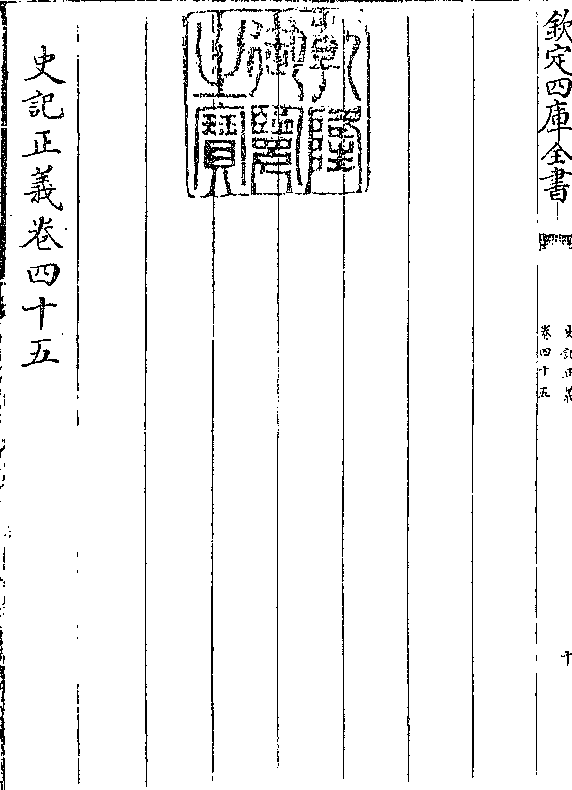 欽定四庫全書
史記正義
卷四十五
十
乾隆
御覽
之寶
史記正義卷四十五